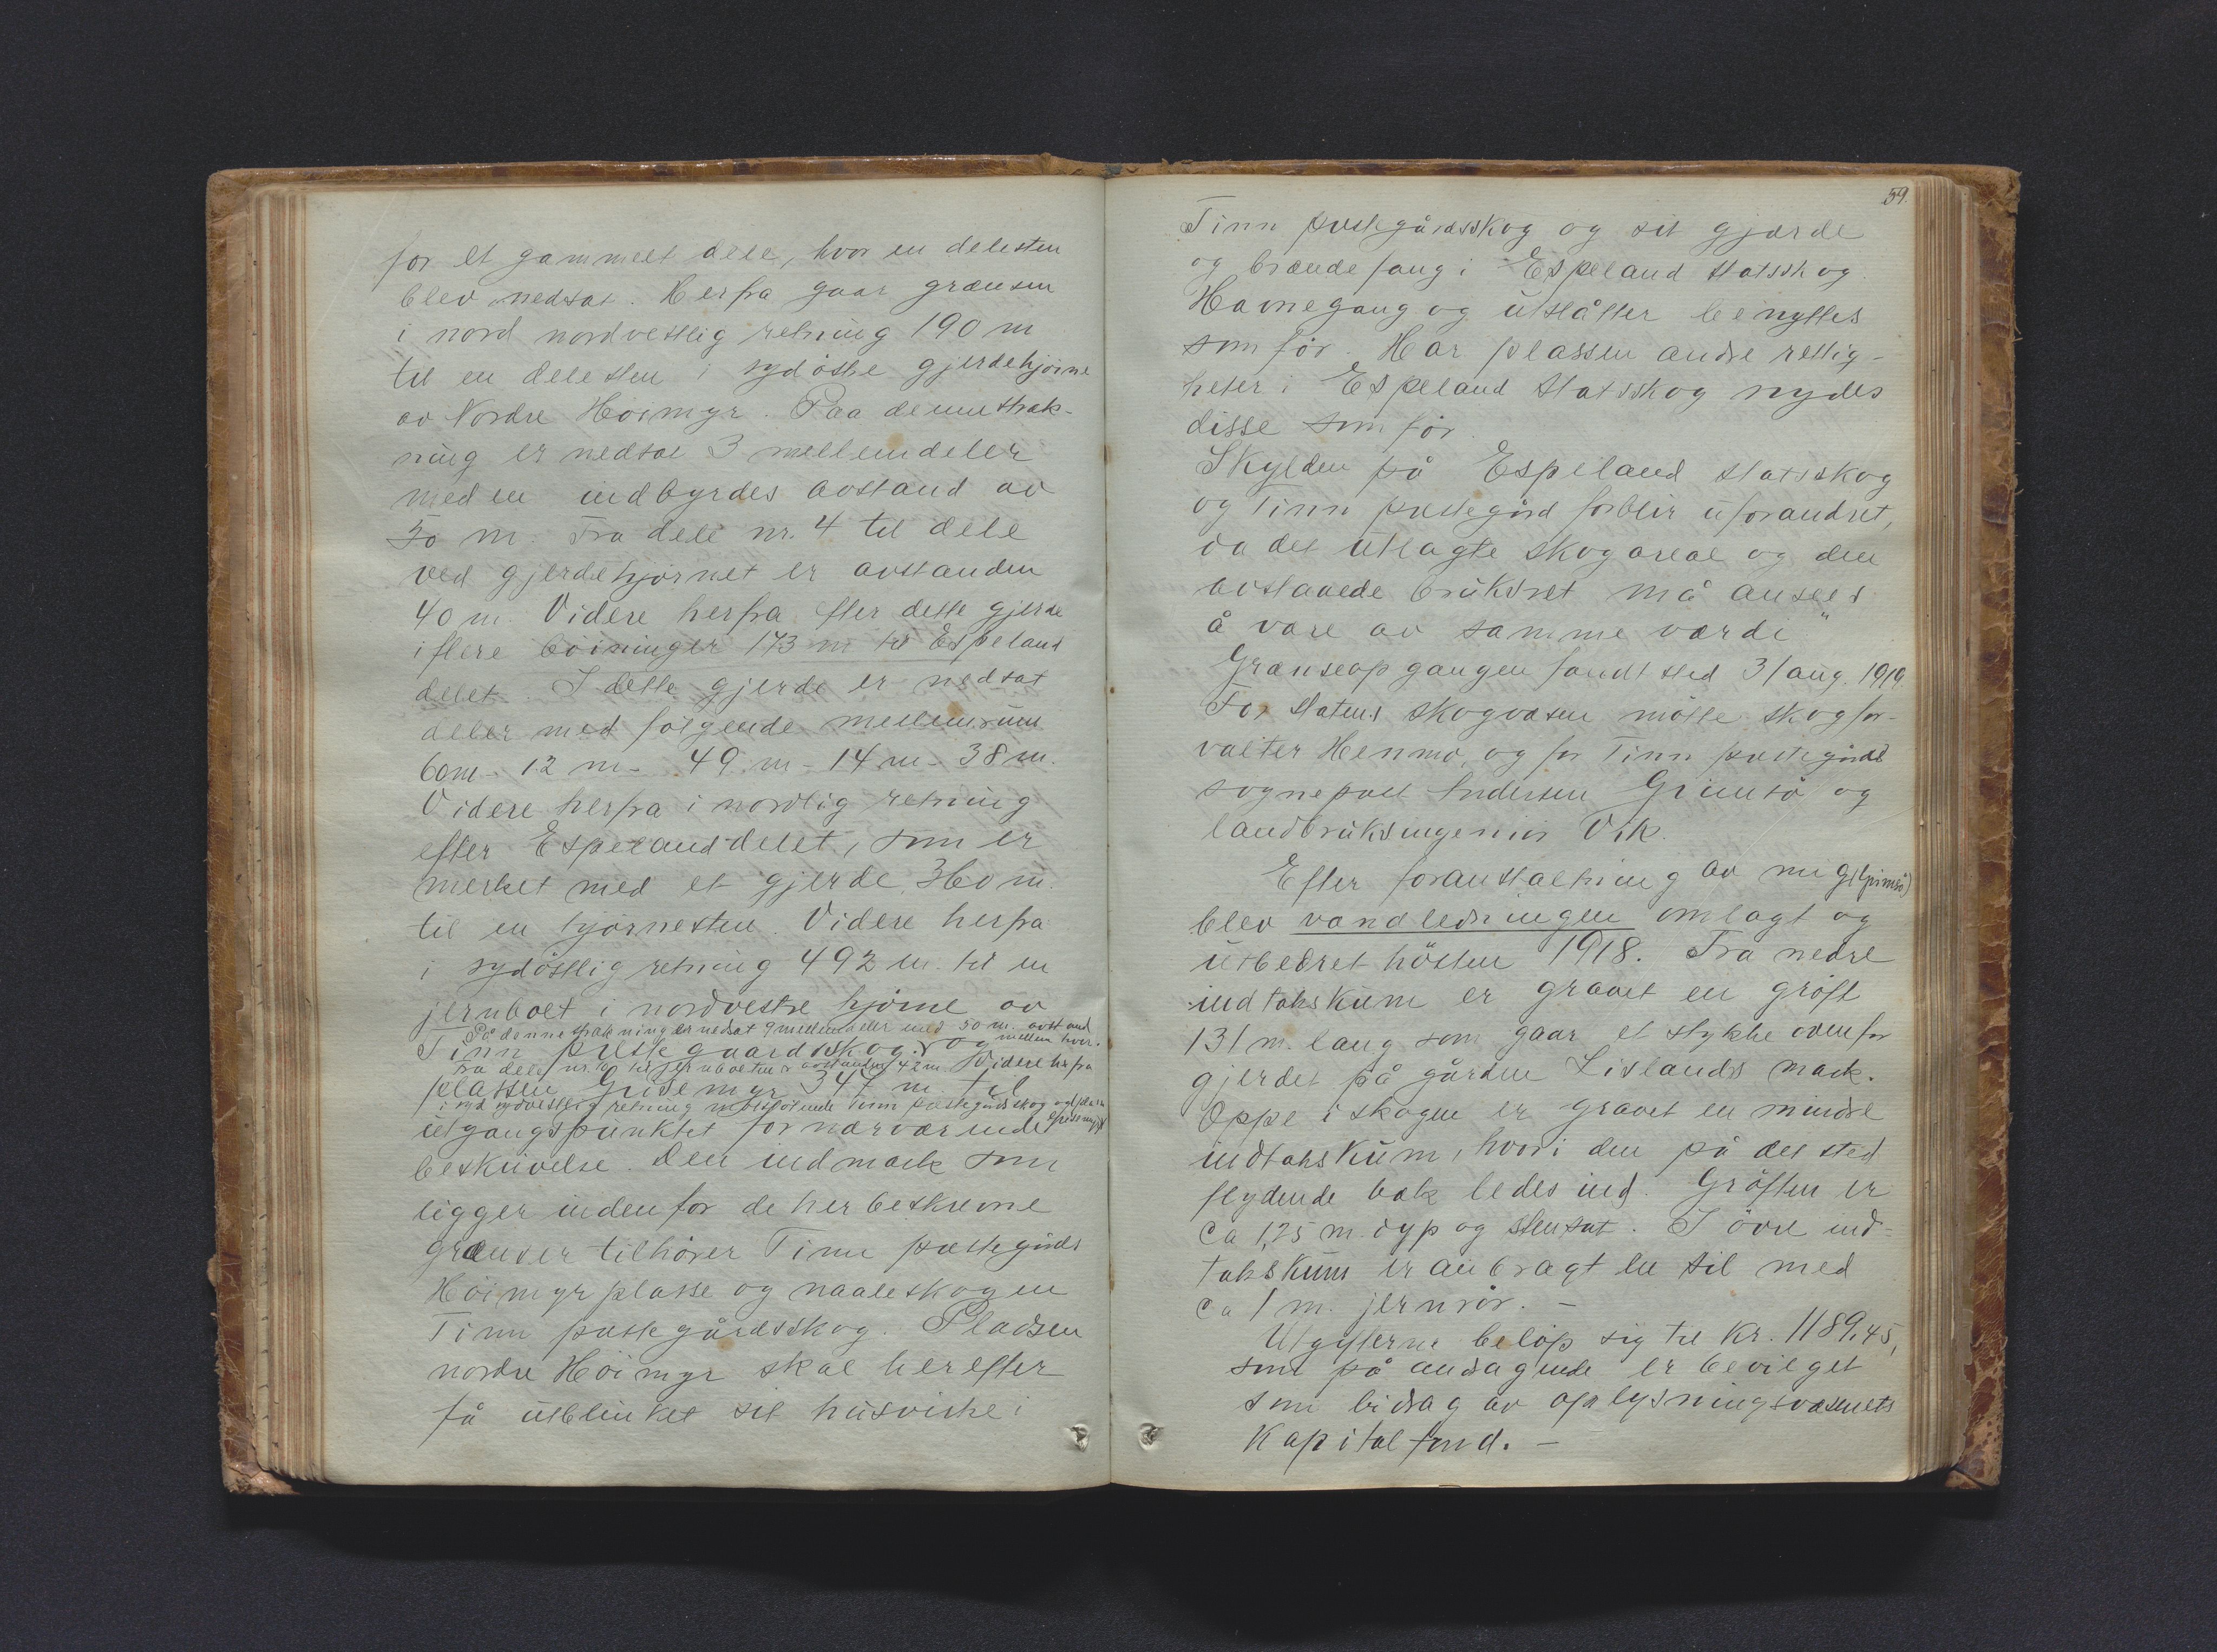 for et gammelt dele, hvor en delesten
blev nedsat. Herfra gaar grænsen
i nord nordvestlig retning 190 m
til en delesten i sydöstre gjerdehjörne
av Nordre Höimyr. Paa denne stræk-
ning er nedsat 3 mellemdeler
med en indbyrdes avstand av
50 m. Fra dele nr. 4 til dele
ved gjerdehjörnet er avstanden
40 m. Videre herfra efter dette gjerde
i flere böininger 173 m til Espeland
delet. I dette gjerde er nedsat
deler med fölgende mellemrum
60 m - 12 m - 49 m - 14 m - 38 m.
Videre herfra i nordlig retning
efter Espelanddelet, som er
merket med et gjerde, 360 m.
til en hjörnesten. Videre herfra
i sydöstlig retning 492 m. til en
jernbolt i nordvestre hjörne av
På denne strækning er nedsat 9 mellemdeler med 50 m. avstand
mellem hver.
Tinn prestegaardsskog og
Fra dele nr. 10 til jernbolten er avstanden 42 m. Videre herfra
plassen Grisemyr 347 m til
i syd sydvestlig retning motstötende Tinn prestegårdsskog og plassen
Grisemyr
utgangspunktet for nærværende
beskrivelse. Den indmark som
ligger indenfor de her beskrevne
grænser tilhörer Tinn prestegårds
Höimyrplasse og naaleskogen
Tinn prestegårdsskog. Pladsen
nordre Höimyr skal herefter
få utblinket sit husvirke i
59.
Tinn prestegårdsskog og sit gjærde
og brændefang i Espeland statsskog.
Havnegang og utslåtter benyttes
som för. Har plassen andre rettig-
heter i Espeland statsskog nydes
disse som för.
Skylden på Espeland statsskog
og Tinn prestegård forblir uforandret,
da det utlagte skogareal og den
avståede bruksret må ansees
å være av samme værdi."
Grænseopgangen fandt sted 31 aug. 1919.
For statens skogvæsen mötte skogfor-
valter Henmo, og for Tinn prestegård
sogneprest Andersen Grimsö og
landbruksingeniör Vik.
Efter foranstaltning av mig (Grimsö)
blev vandledningen omlagt og
utbedret hösten 1918. Fra nedre
indtakskum er gravet en gröft
131 m. lang som gaar et stykke ovenfor
gjerdet på gården Lislands mark.
Oppe i skogen er gravet en mindre
indtakskum, hvori den på det sted
flydende bæk ledes ind. Gröften er
ca 1,25 m. dyp og stensat. I övre ind-
takskum er anbragt en sil med
ca 1 m. jernrör. -
Utgifterne belöp sig til Kr. 1189,45,
som på andragende er bevilget
som bidrag av oplysningsvæsenets
Kapitalfond. -